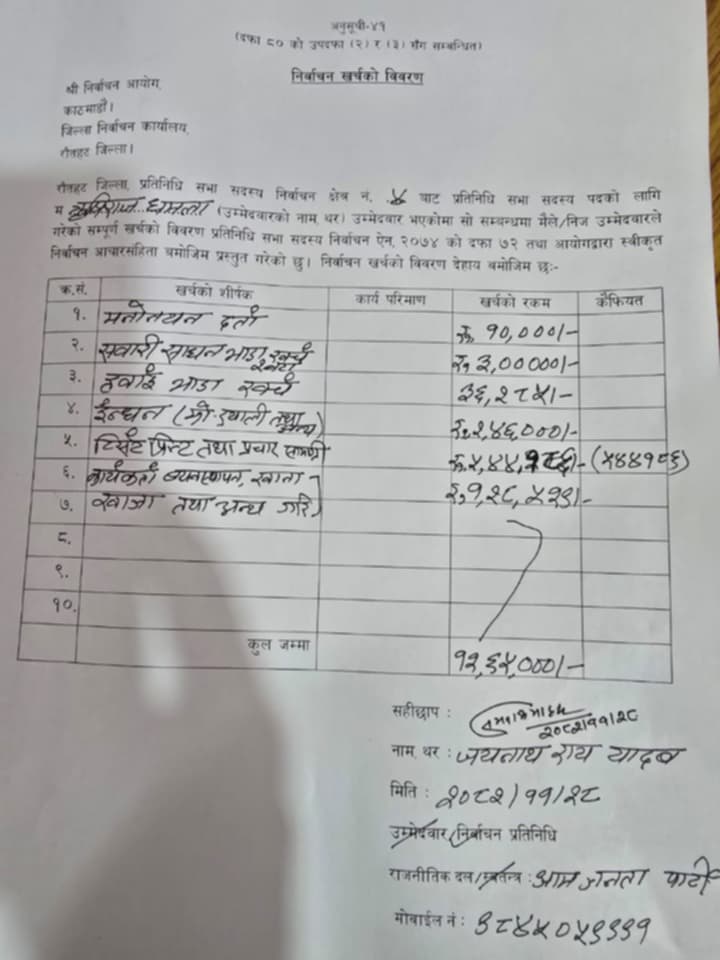 अनुसूची-४१
(दफा ८० को उपदफा (२) र (३) सँग सम्बन्धित)
निर्वाचन खर्चको विवरण
श्री निर्वाचन आयोग,
काठमाडौं।
जिल्ला निर्वाचन कार्यालय,
रौतहट जिल्ला।
रौतहट जिल्ला, प्रतिनिधि सभा सदस्य निर्वाचन क्षेत्र नं. बाट प्रतिनिधि सभा सदस्य पदको लागि
म ऋषिराज धमला (उम्मेदवारको नाम, थर) उम्मेदवार भएकोमा सो सम्बन्धमा मैले/निज उम्मेदवारले
गरेको सम्पूर्ण खर्चको विवरण प्रतिनिधि सभा सदस्य निर्वाचन ऐन, २०७४ को दफा ७२ तथा आयोगद्वारा स्वीकृत
निर्वाचन आचारसंहिता बमोजिम प्रस्तुत गरेको छु। निर्वाचन खर्चको विवरण देहाय बमोजिम छः-
क्र.सं. खर्चको शीर्षक कार्य परिमाण खर्चको रकम कैफियत
१. मनोनयन दर्ता रु. १०,०००/-
२. सवारी साधन भाडा खर्च रु. ३,०००००/-
३. हवाई भाडा खर्च ३६,२८५/-
४. ईन्धन तथा रु. २,४६,०००/-
५. प्रिन्ट तथा प्रचार सामग्री रु. ५,४४,१८६/- (५४४१८६)
६. कार्यकर्ता व्यवस्थापन, खाना रु. १,२८,५२९/-
७. खाजा तथा अन्य गरि
८.
९.
१०.
कुल जम्मा १२,६५,०००/-
सहीछाप :
२०८२/११/२८
नाम, थर : जयनाथ राय यादव
मिति : २०८२/११/२८
उम्मेदवार/निर्वाचन प्रतिनिधि
राजनीतिक दल/स्वतन्त्र : आम जनता पार्टी
मोबाईल नं : ९८४५०५९९९१